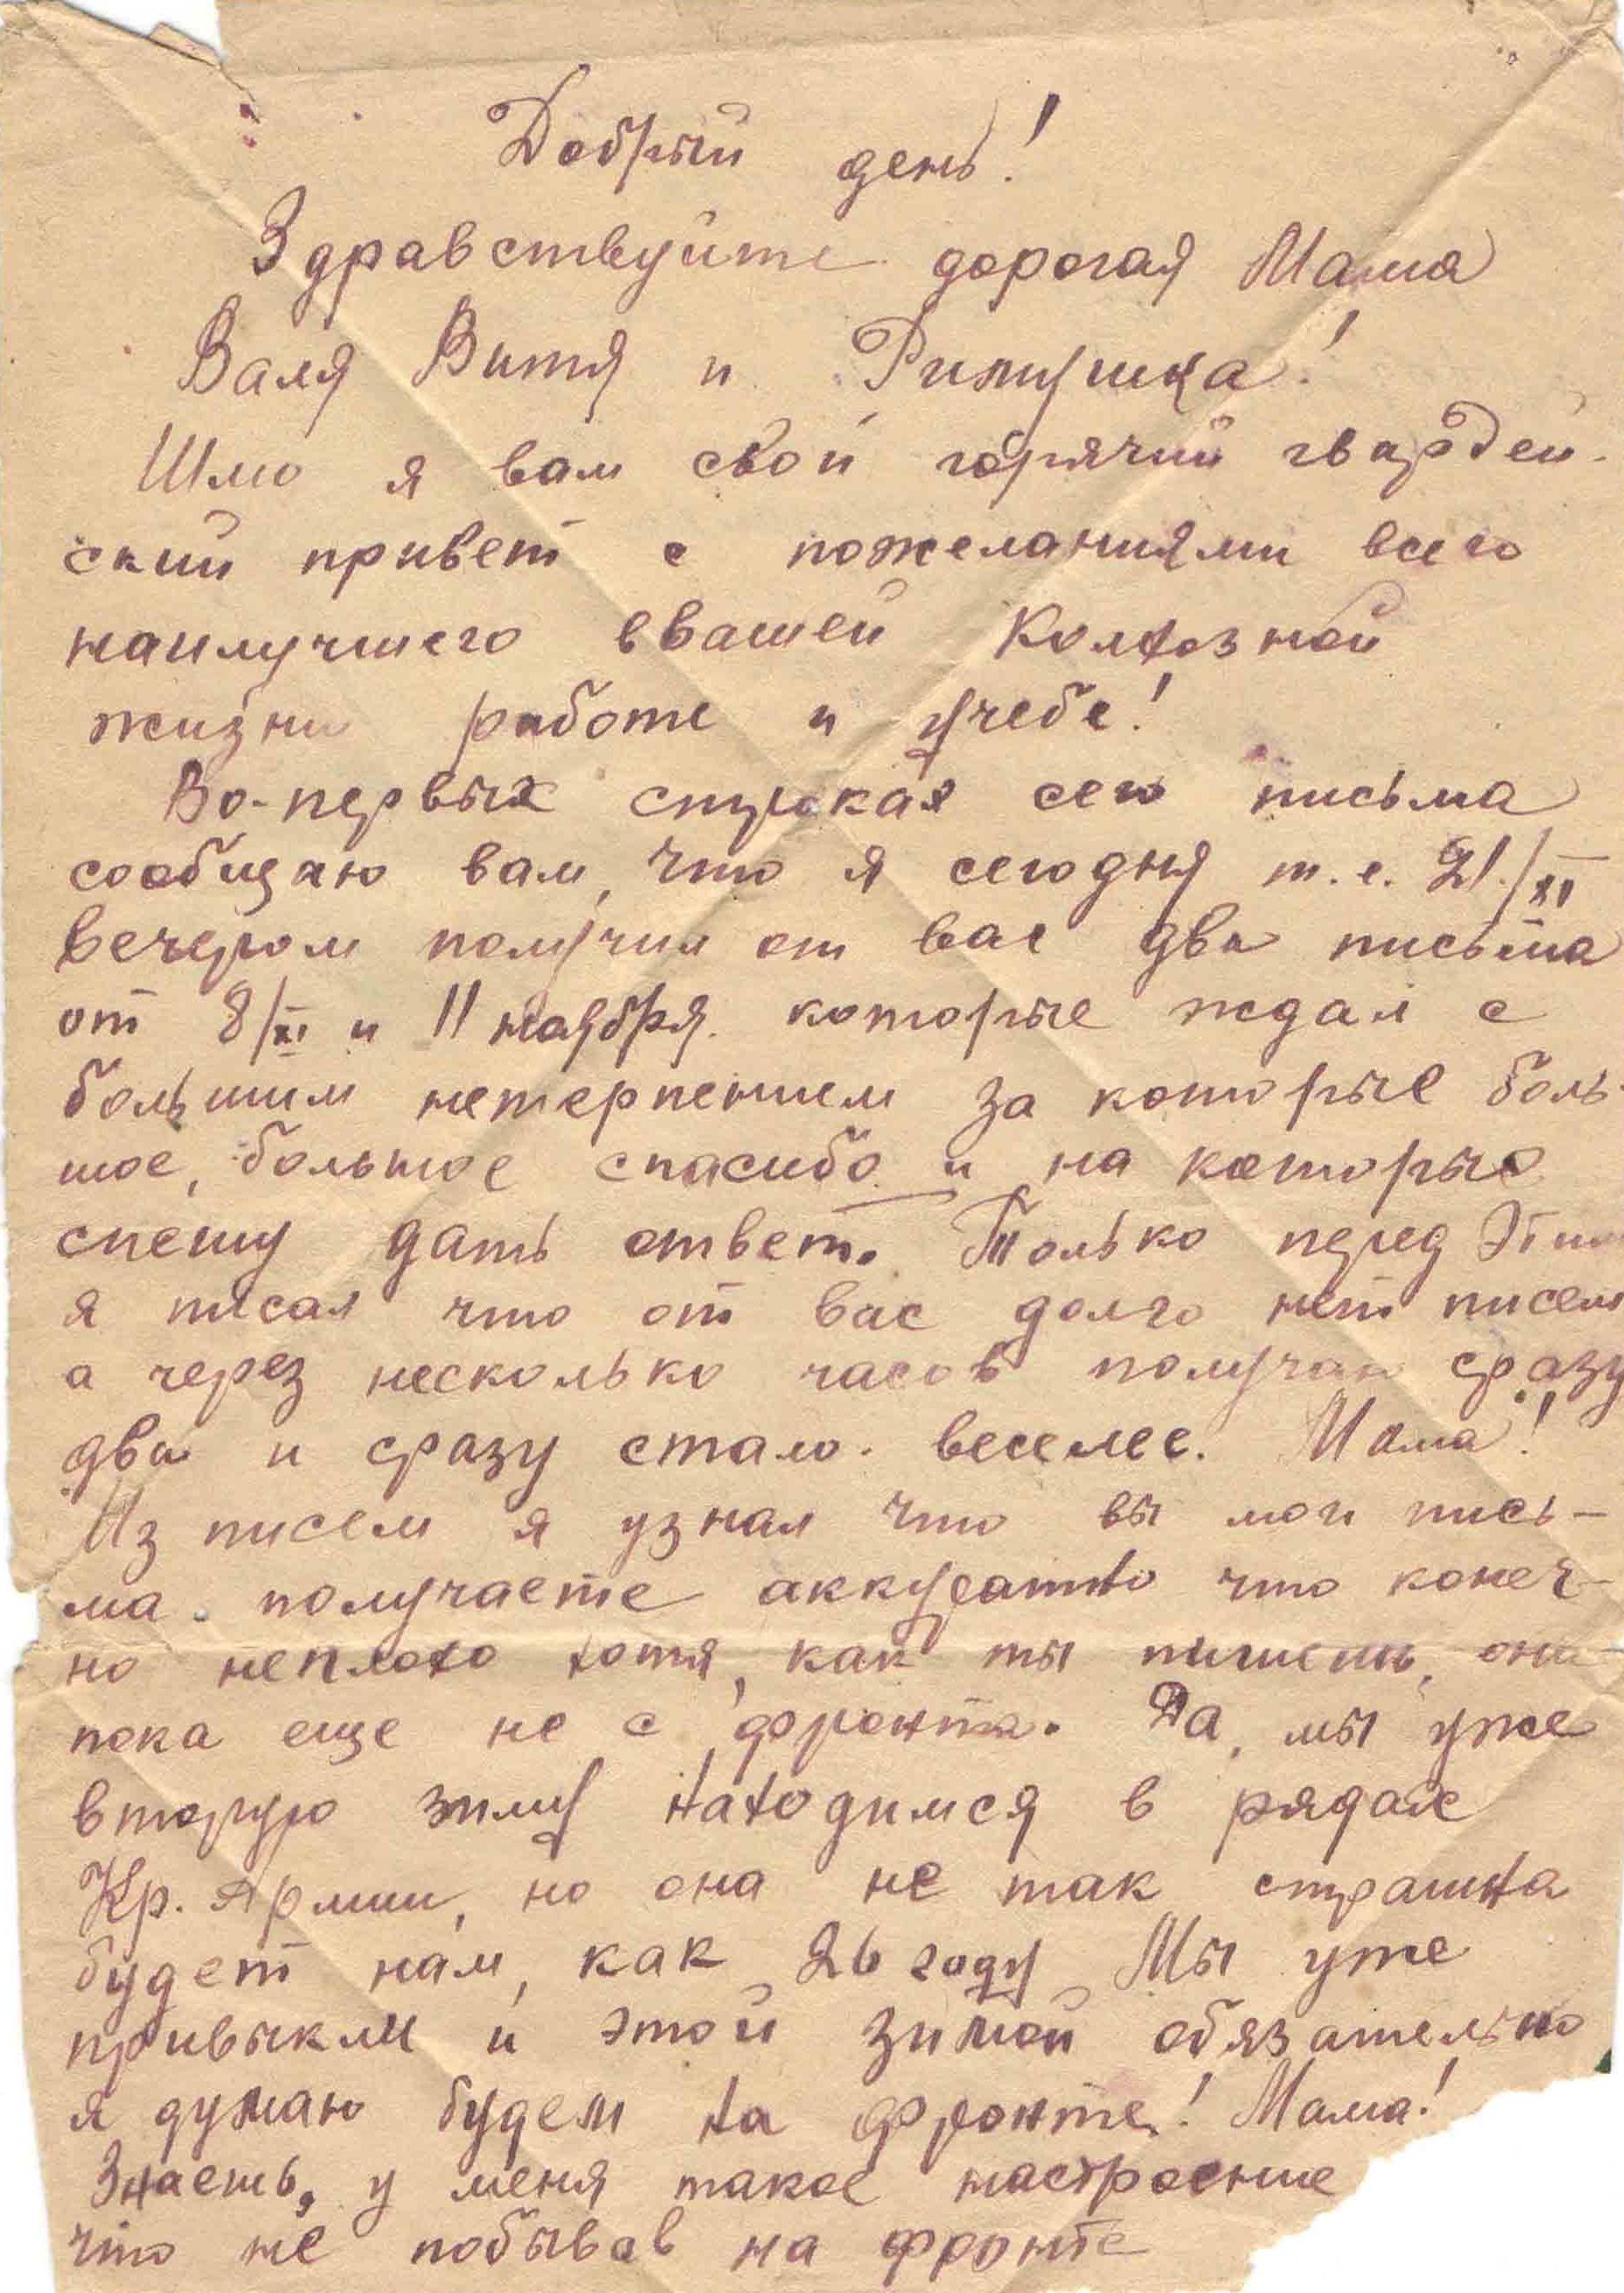 Добрый день!
Здравствуйте дорогая Мама
Валя Витя и Римушка!
Шлю я вам свой горячий гвардей-
ский привет с пожеланиями всего
наилучшего в вашей Колхозной
жизни работе и учебе!
Во-первых строках сего письма
сообщаю вам, что я сегодня т.е. 21/XI
вечером получил от вас два письма
от 8/XI и 11 ноября. которые ждал с
большим нетерпением за которые боль-
шое, большое спасибо и на которые
спешу дать ответ. Только перед этим
я писал что от вас долго нет писем
а через несколько часов получаю сразу
два и сразу стало веселее. Мама!
Из писем я узнал что вы мои пись-
ма получаете аккуратно что конеч-
но неплохо хотя, как ты пишешь, они
пока еще не с фронта. Да, мы уже
вторую зиму находимся в рядах
Кр. Армии, но она не так страшна
будет нам, как 26 году Мы уже
привыкли и этой зимой обязательно
я думаю будем на фронте! Мама!
Знаешь, у меня такое настроение
что не побывав на фронте